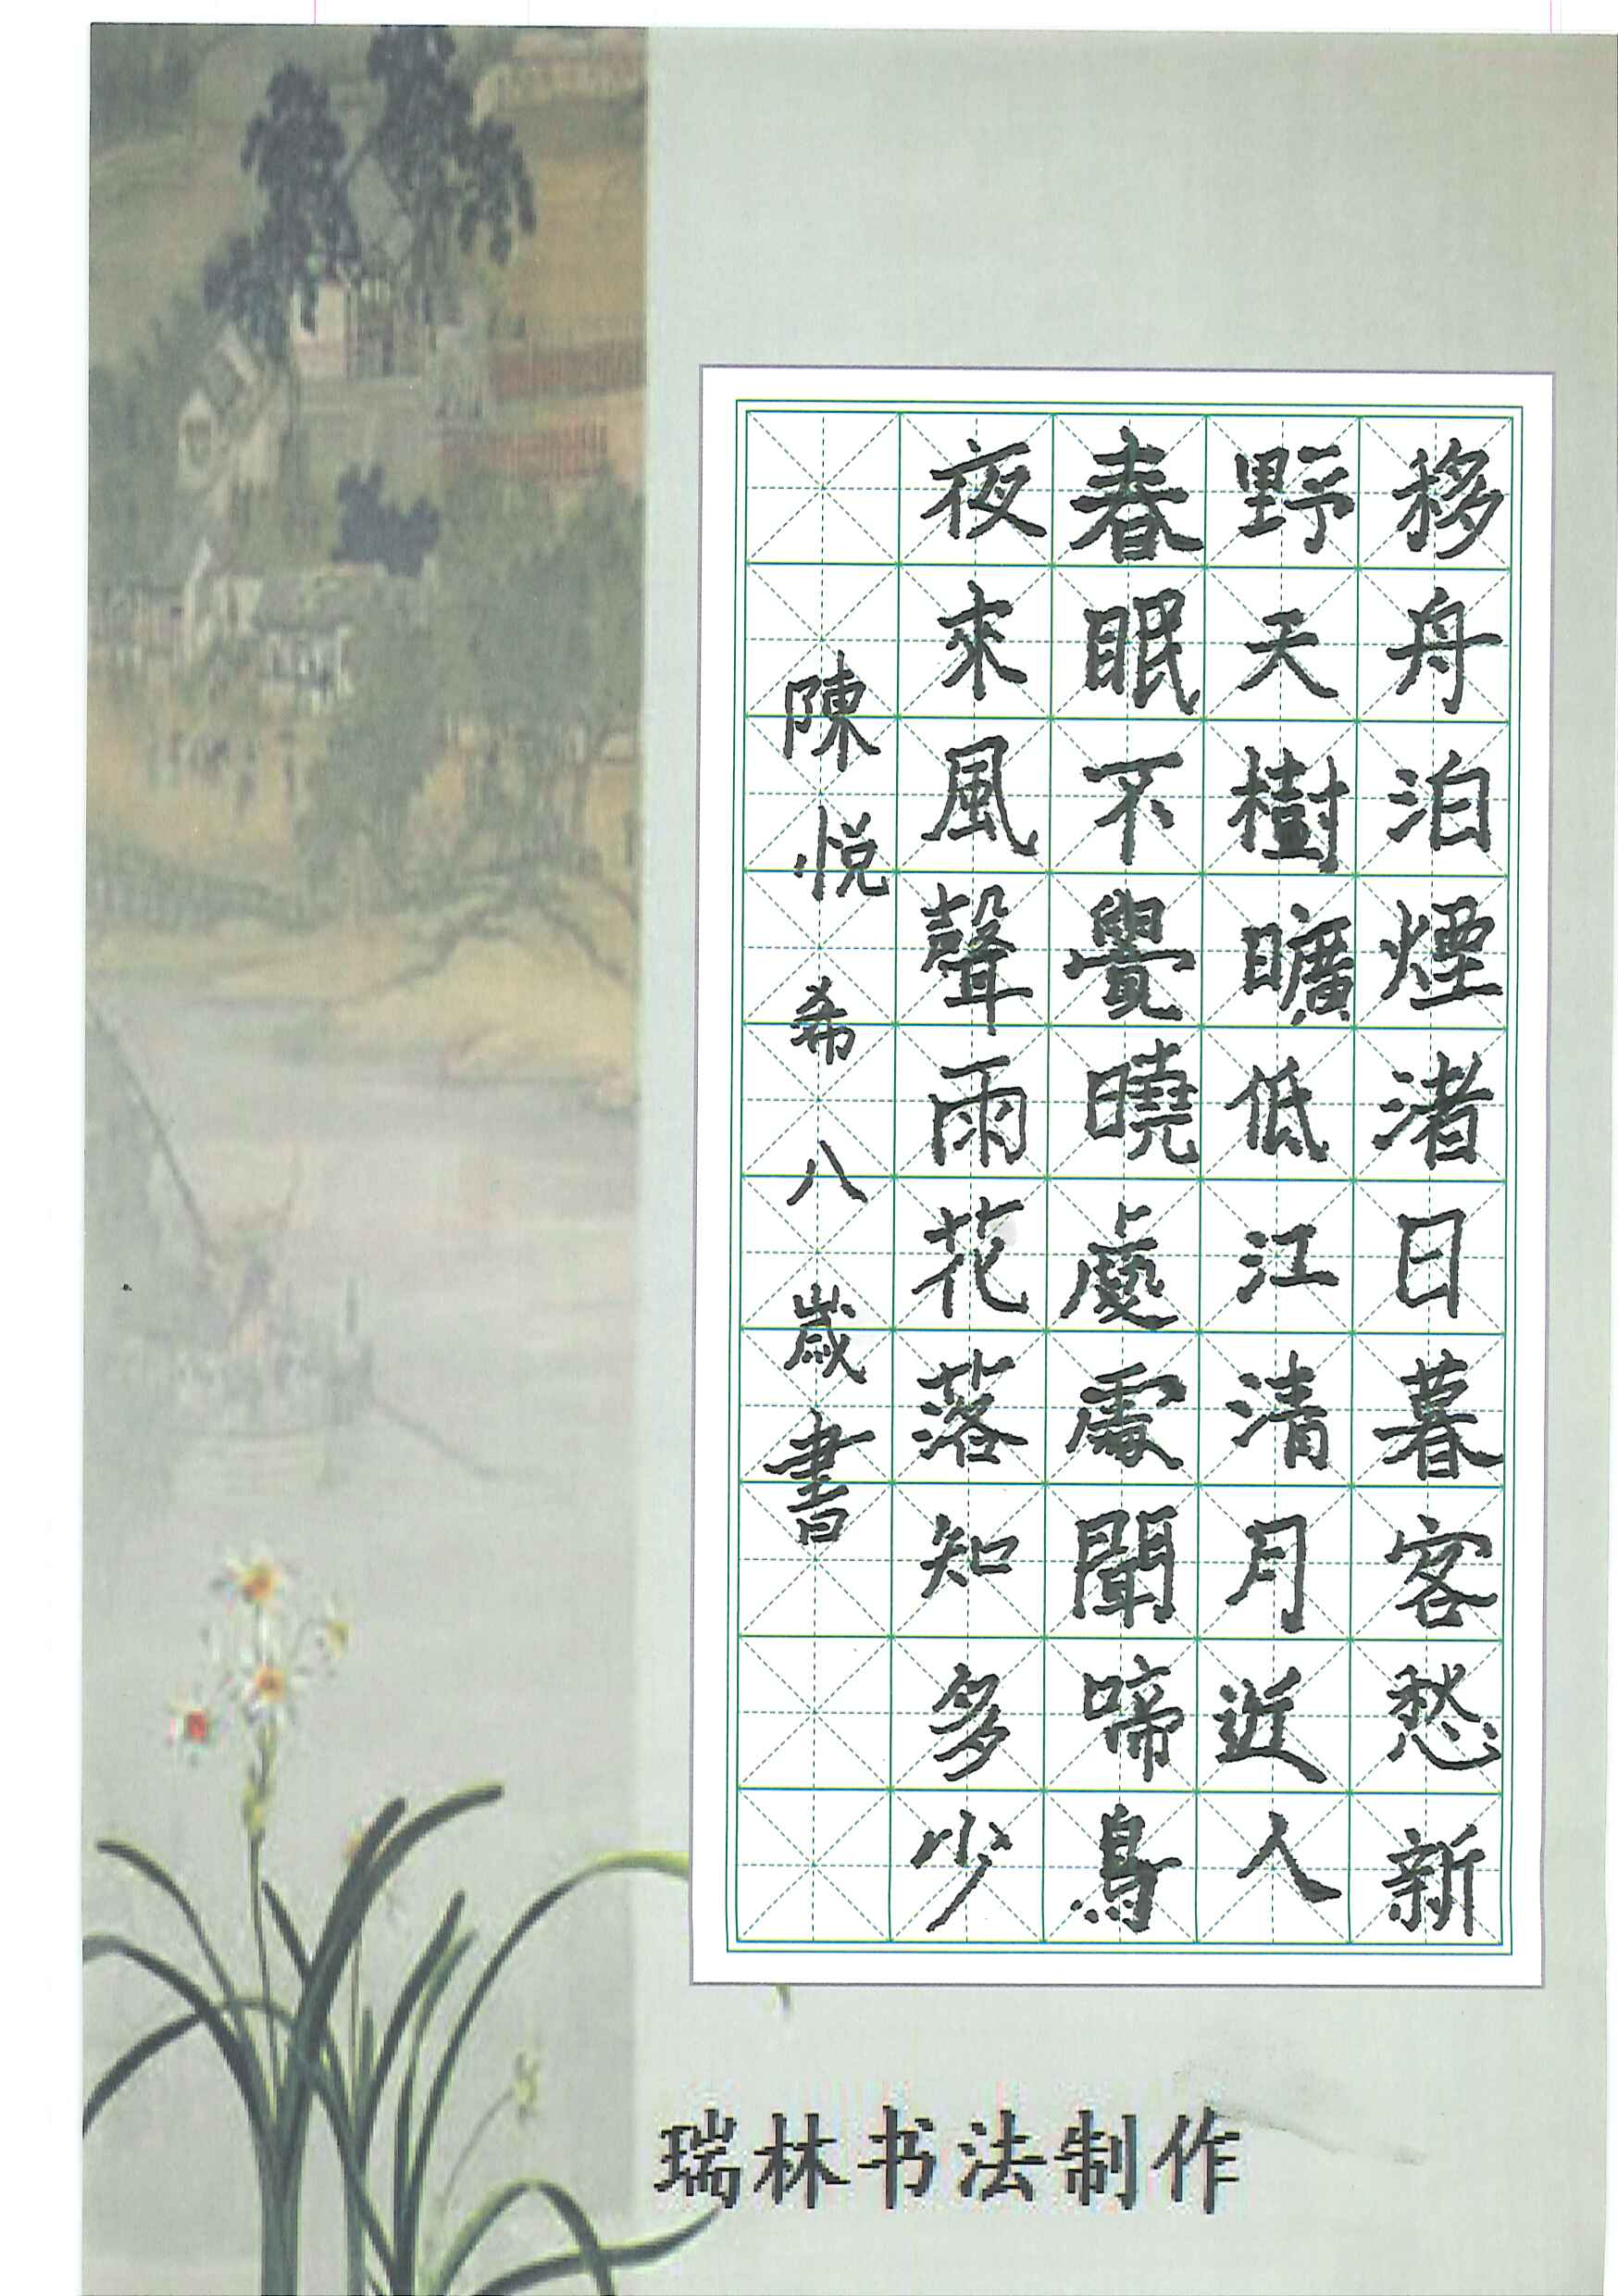 移舟泊煙渚日暮客愁新
野天樹曠低江清月近人
春眠不覺曉處處聞啼鳥
夜來風聲雨花落知多少
陳悦希八歲書
瑞林书法制作